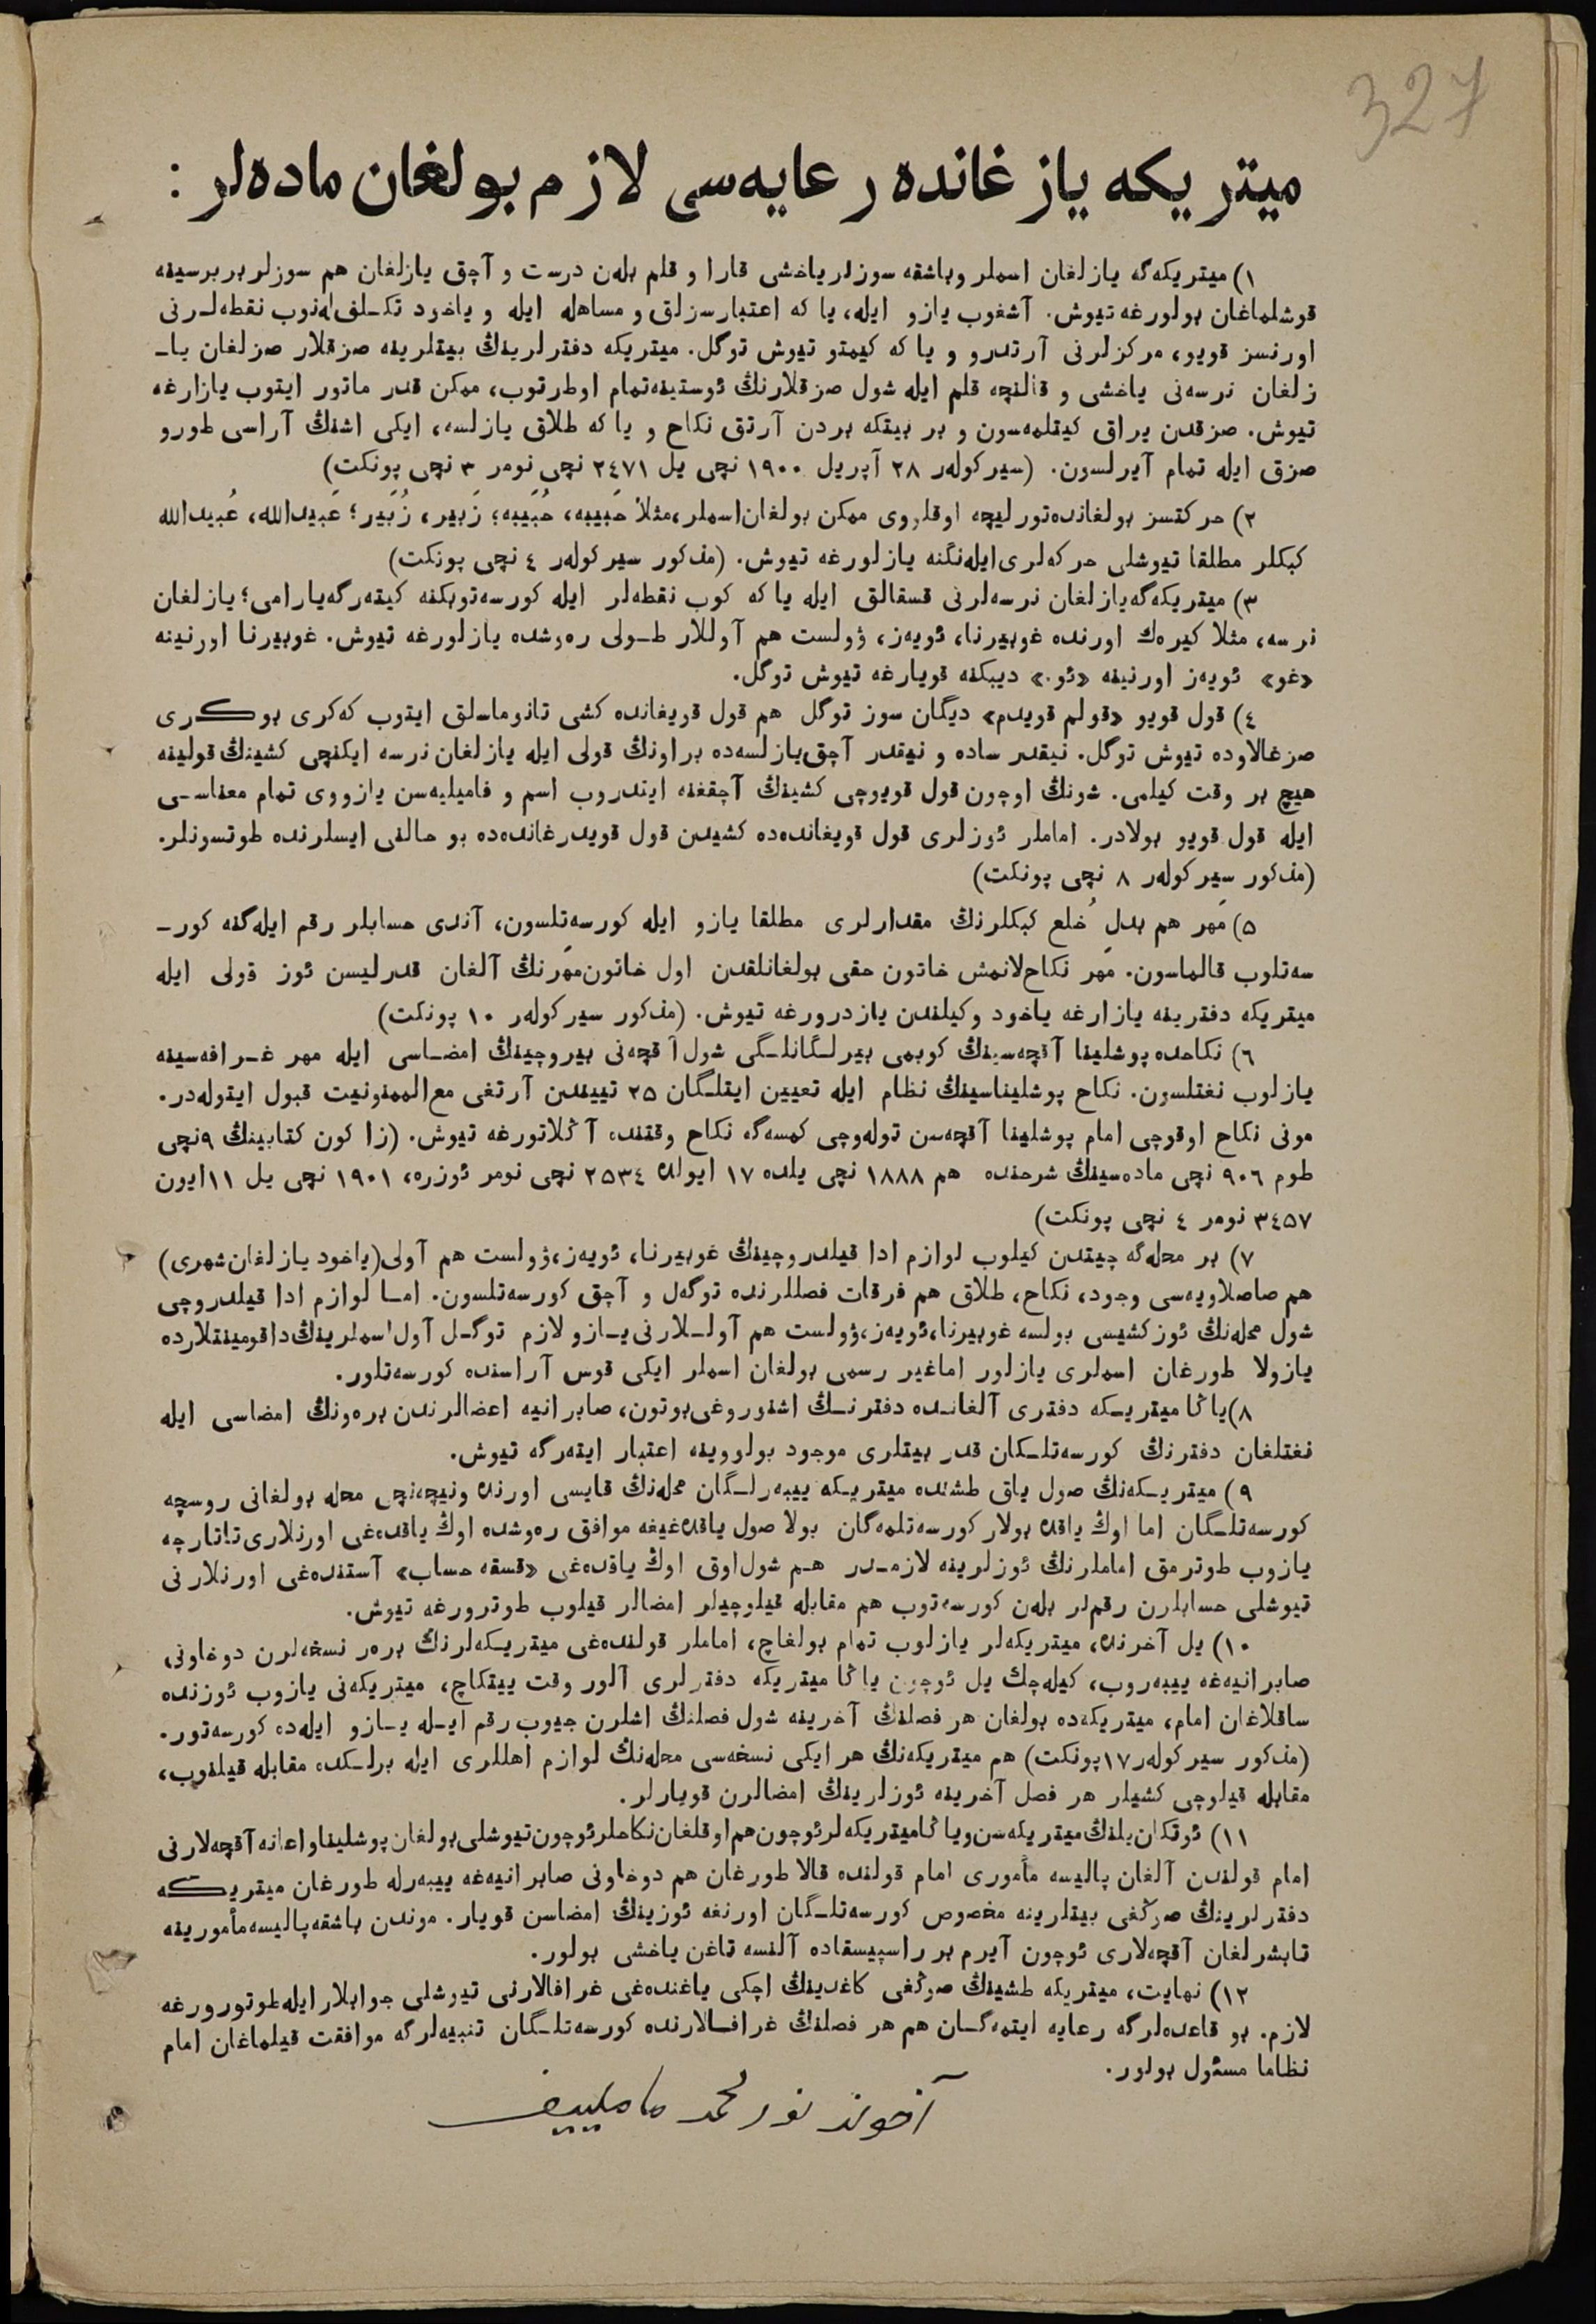 327
میتریكه یازغانده رعایه‌سی لازم بولغان ماده‌لر :
١) میتریكه‌گه یازلغان اسملر وباشقه سوزلر یاخشی قارا و قلم بله‌ن درست و آچق یازلغان هم سوزلر بربرسینه
قوشلماغان بولورغه تیوش. آشغوب یازو ایله، یا كه اعتبارسزلق و مساهله ایله و یاخود تكـلف له‌نوب نقطه‌لـرنی
اورنسز قویو، مركزلرنی آرتدرو و یا كه كیمتو تیوش توگل. میتریكه دفترلرینڭ بیتلرینه صزقلار صزلغان یاـ
زلغان نرسه‌نی یاخشی و قالنچه قلم ایله شول صزقلارنڭ ئوستینه تمام اوطرتوب، ممكن قدر ماتور ایتوب یازارغه
تیوش. صزقدن یراق كیتلمه‌سون و بر بیتكه بردن آرتق نكاح و یا كه طلاق یازلسه، ایكی اشنڭ آراسی طورو
صزق ایله تمام آیرلسون. (سیركوله‌ر ٢٨ آپریل ١٩٠٠ نچی یل ٢٤٧١ نچی نومر ٣ نچی پونكت)
٢) حركتسز بولغانده تورلیچه اوقلووی ممكن بولغان اسملر، مثلا حَبیبه، حُبَیبه؛ زَبیر، زُبَیر؛ عَبیدالله، عُبیدالله
كبكلر مطلقا تیوشلی حركه‌لری ایله‌نگنه یازلورغه تیوش. (مذكور سیركوله‌ر ٤ نچی پونكت)
٣) میتریكه‌گه یازلغان نرسه‌لرنی قسقالق ایله یا كه كوب نقطه‌لر ایله كورسه‌توبكنه كیته‌رگه یارامی؛ یازلغان
نرسه، مثلا كیره‌ك اورنده غوبیرنا، ئویه‌ز، ۋولست هم آوللار طـولی ره‌وشده یازلورغه تیوش. غوبیرنا اورنینه
«غو» ئویه‌ز اورنینه «ئو.» دیبكنه قویارغه تیوش توگل.
٤) قول قویو «قولم قویدم» دیگان سوز توگل هم قول قویغانده كشی تانوماسلق ایتوب كه‌كری بوكـری
صزغالاوده تیوش توگل. نیقدر ساده و نیقدر آچق یازلسه‌ده براونڭ قولی ایله یازلغان نرسه ایكنچی كشینڭ قولینه
هیچ بر وقت كیلمی. شونڭ اوچون قول قویوچی كشینڭ آچقغنه ایندروب اسم و فامیلیه‌سن یازووی تمام معناسـی
ایله قول قویو بولادر. اماملر ئوزلری قول قویغانده‌ده كشیدن قول قویدرغانده‌ده بو حالنی ایسلرنده طوتسونلر.
(مذكور سیركوله‌ر ٨ نچی پونكت)
۵) مَهر هم بدلِ خُلع كبكلرنڭ مقدارلری مطلقا یازو ایله كورسه‌تلسون، آندی حسابلر رقم ایله‌گنه كورـ
سه‌تلوب قالماسون. مَهر نكاح‌لانمش خاتون حقی بولغانلقدن اول خاتون مَهرنڭ آلغان قدرلیسن ئوز قولی ایله
میتریكه دفترینه یازارغه یاخود وكیلندن یازدرورغه تیوش. (مذكور سیركوله‌ر ١٠ پونكت)
٦) نكاحده پوشلینا آقچه‌سینڭ كوبمی بیرلـگانلـگی شول آقچه‌نی بیروچینڭ امضـاسی ایله مهر غـرافه‌سینه
یازلوب نغتلسون. نكاح پوشلیناسینڭ نظام ایله تعیین ایتلـگان ٢۵ تییندن آرتغی مع‌الممنونیت قبول ایتوله‌در.
مونی نكاح اوقوچی امام پوشلینا آقچه‌سن توله‌وچی كمسه‌گه نكاح وقتنده آڭلاتورغه تیوش. (زاكون كتابینڭ ٩نچی
طوم ٩٠٦ نچی ماده‌سینڭ شرحنده هم ١٨٨٨ نچی یلده ١٧ ایولده ٢۵٣٤ نچی نومر ئوزره، ١٩٠١ نچی یل ١١ایون
٣٤۵٧ نومر ٤ نچی پونكت)
٧) بر محله‌گه چیتدن كیلوب لوازم ادا قیلدروچینڭ غوبیرنا، ئویه‌ز، ۋولست هم آولی(یاخود یازلغان شهری)
هم صاصلاویه‌سی وجود، نكاح، طلاق هم فرقات فصللرنده توگه‌ل و آچق كورسه‌تلسون. امـا لوازم ادا قیلدروچی
شول محله‌نڭ ئوز كشیسی بولسه غوبیرنا، ئویه‌ز، ۋولست هم آولـلارنی یـازو لازم توگـل آول اسملرینڭ داقومینتلارده
یازولا طورغان اسملری یازلور اماغیر رسمی بولغان اسملر ایكی قوس آراسنده كورسه‌تلور.
٨)یاڭا میتریـكه دفتری آلغانـده دفترنـڭ اشنوروغی بوتون، صابرانیه اعضالرندن بره‌ونڭ امضاسی ایله
نغتلغان دفترنڭ كورسه‌تلـكان قدر بیتلری موجود بولووینه اعتبار ایته‌رگه تیوش.
٩) میتریـكه‌نڭ صول یاق طشنده میتریـكه ییبه‌رلـگان محله‌نڭ قایسی اورنده ونیچه‌نچی محله بولغانی روسچه
كورسه‌تلـگان اما اوڭ یاقده بولار كورسه‌تلمه‌گان بولا صول یاقده‌غیغه موافق ره‌وشده اوڭ یاقده‌غی اورنلاری تاتارچه
یازوب طوترمق اماملرنڭ ئوزلرینه لازمـدر هـم شول‌اوق اوڭ یاقده‌غی «قسقه حساب» آستنده‌غی اورنلارنی
تیوشلی حسابلرن رقم‌لر بله‌ن كورسه‌توب هم مقابله قیلوچیلر امضالر قیلوب طوترورغه تیوش.
١٠) یل آخرنده، میتریكه‌لر یازلوب تمام بولغاچ، اماملر قولنده‌غی میتریـكه‌لرنڭ بره‌ر نسخه‌لرن دوخاونی
صابرانیه‌غه ییبه‌روب، كیله‌چك یل ئوچون یاڭا میتریكه دفترلری آلور وقت ییتكاچ، میتریكه‌نی یازوب ئوزنده
ساقلاغان امام، میتریكه‌ده بولغان هر فصلنڭ آخرینه شول فصلنڭ اشلرن جیوب رقم ایـله یـازو ایله‌ده كورسه‌تور.
(مذكور سیركوله‌ر ١٧پونكت) هم میتریكه‌نڭ هر ایكی نسخه‌سی محله‌نڭ لوازم اهللری ایله برلـكده مقابله قیلنوب،
مقابله قیلوچی كشیلر هر فصل آخرینه ئوزلرینڭ امضالرن قویارلر.
١١) ئوتكان یلنڭ میتریكه‌سن ویاڭا میتریكه‌لر ئوچون هم اوقلغان نكاحلر ئوچون تیوشلی بولغان پوشلینا واعانه آقچه‌لارنی
امام قولندن آلغان پالیسه مأموری امام قولنده قالا طورغان هم دوخاونی صابرانیه‌غه ییبه‌رله طورغان میتریـكه
دفترلرینڭ صوڭغی بیتلرینه مخصوص كورسه‌تلـگان اورنغه ئوزینڭ امضاسن قویار. موندن باشقه پالیسه مأمورینه
تابشرلغان آقچه‌لاری ئوچون آیرم بر راسپیسقاده آلنسه تاغن یاخشی بولور.
١٢) نهایت، میتریكه طشینڭ صوڭغی كاغدینڭ اچكی یاغنده‌غی غرافالارنی تیوشلی جوابلار ایله طوتورورغه
لازم. بو قاعده‌لرگه رعایه ایتمه‌گـان هم هر فصلنڭ غرافـالارنده كورسه‌تلـگان تنبیه‌لرگه موافقت قیلماغان امام
نظاما مسئول بولور.
آخوند نورمحمد ماملییف